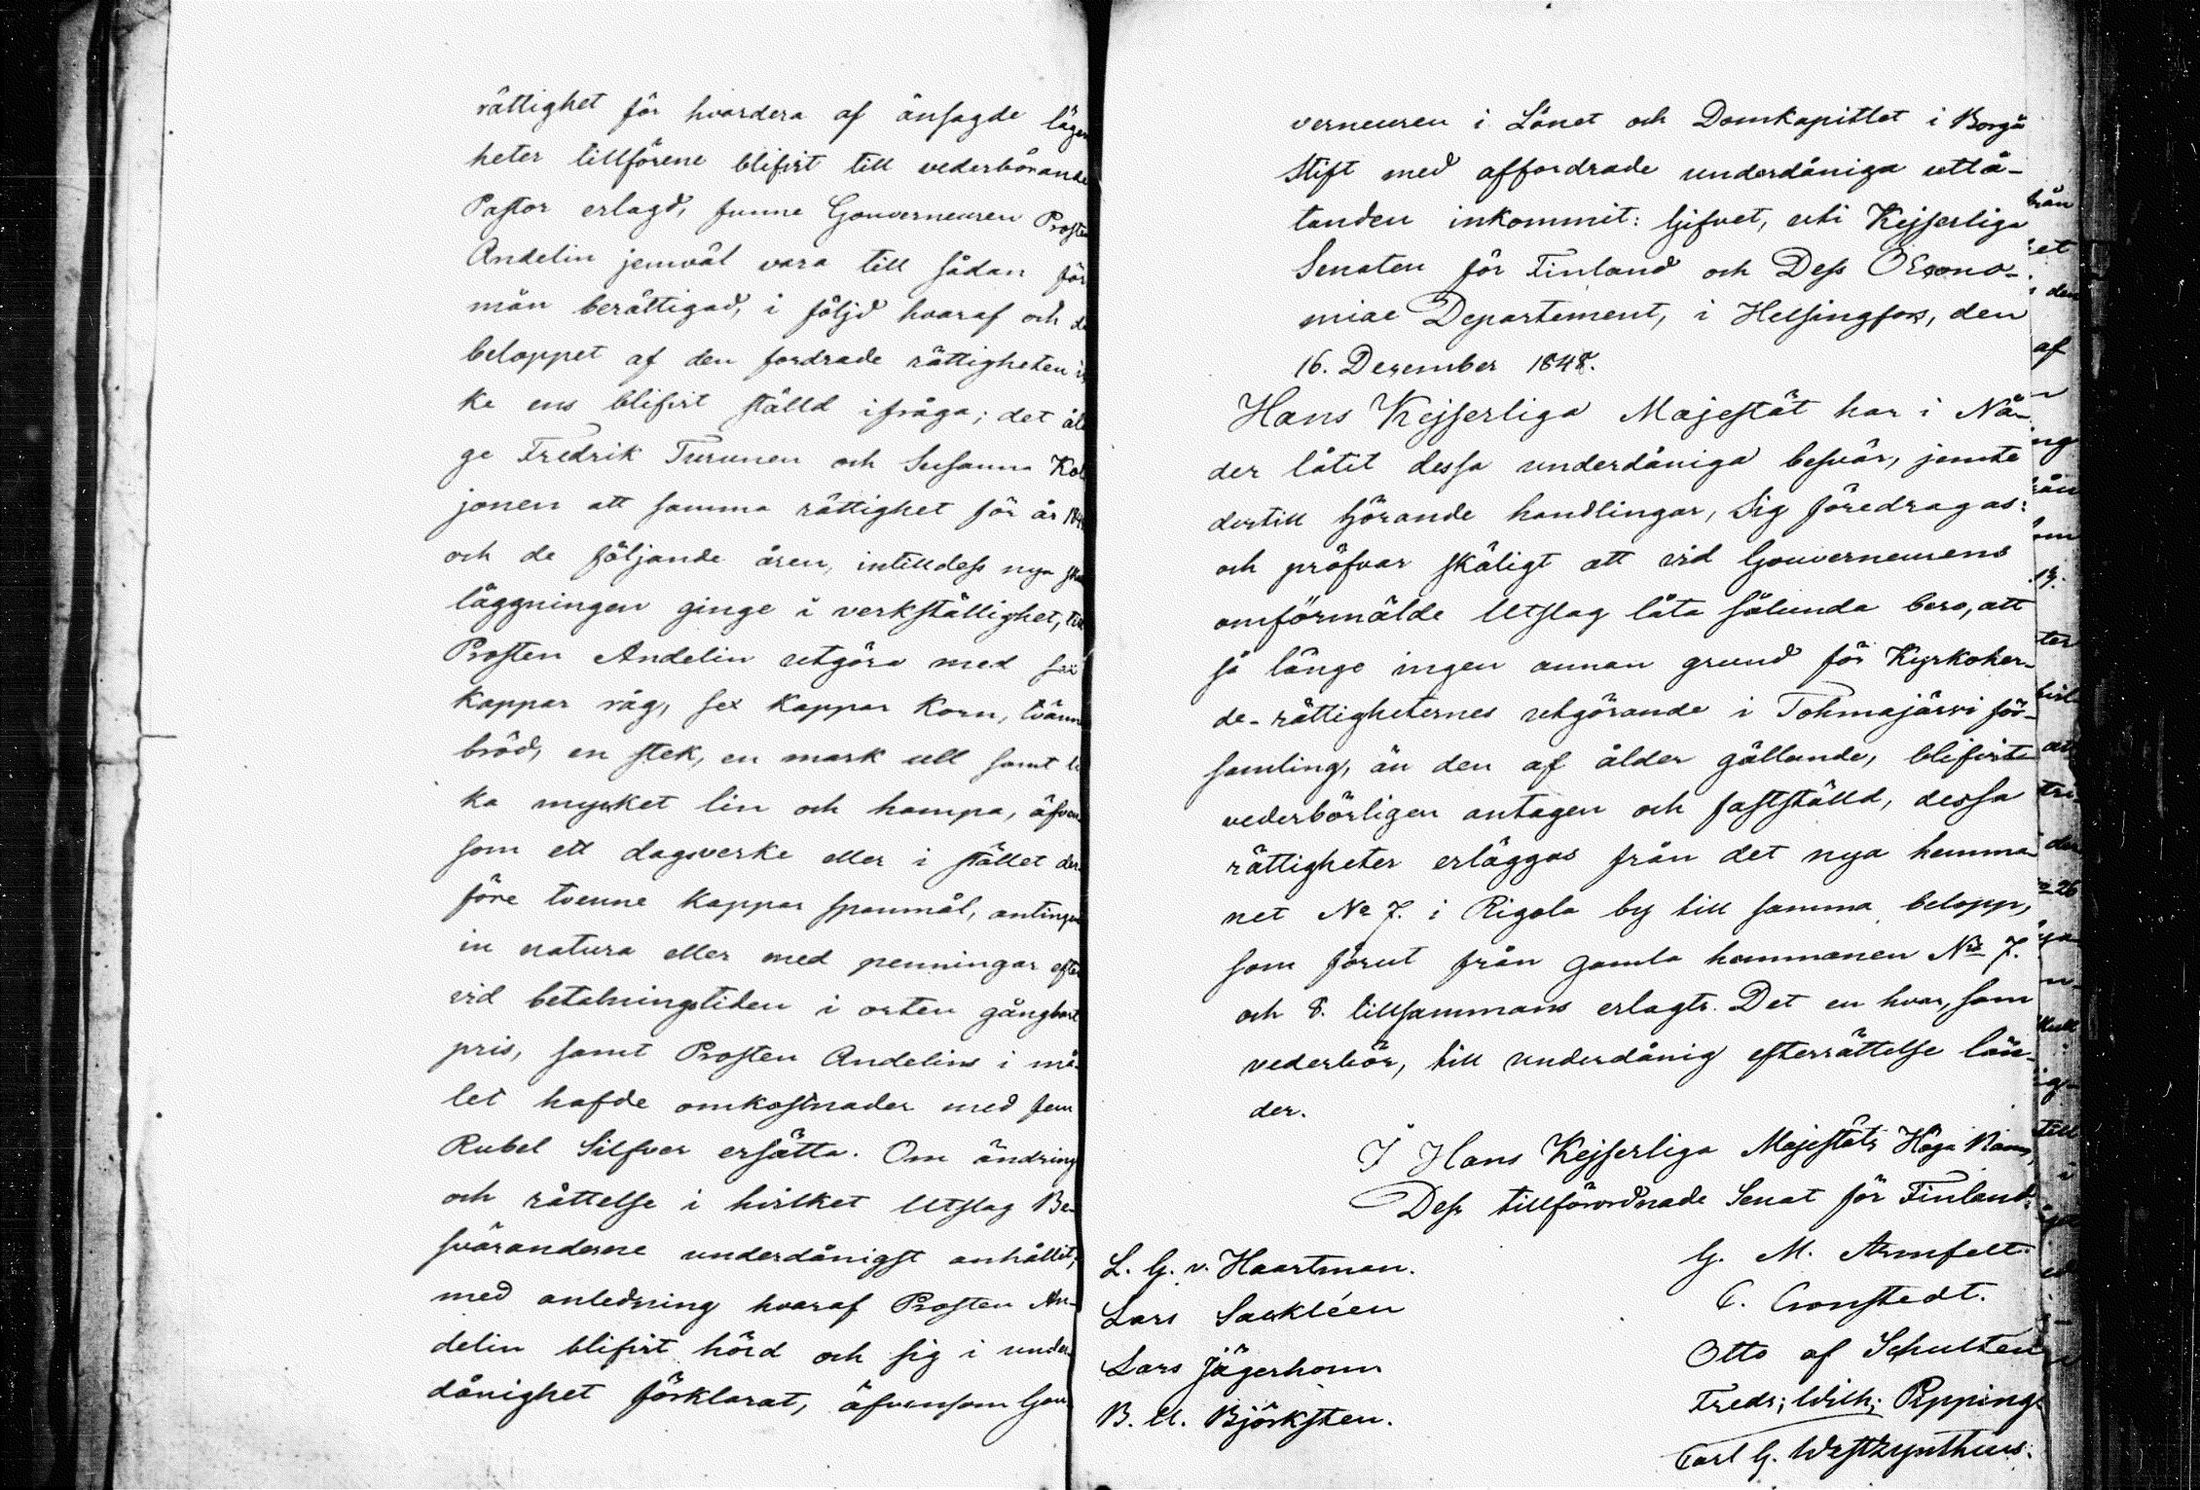 rättighet för hvardera af ånsagde lägen
heter tillförene blifvit till vederbörande
Pastor erlagd, funne Gouverneuren Prosten
Andelin jemväl vara till sådan för
mån berättigad, i följd hvaraf och då
beloppet af den fordrade rättigheten ic
ke ens blifvit ställd ifråga; det åla
ge Fredrik Turunen och Susanna Kol
jonen att samma rättighet för år 184
och de följande åren, intilldess nya ska
läggningen ginge i verkställighet, till
Prosten Andelin utgöra med sex
kappar råg, sex kappar korn, tvänne
bröd, en stek, en mark ull samt li
ka mycket lin och hampa, äfven
som ett dagsverke eller i stället der
före tvenne kappar spanmål, antingen
in natura eller med penningar efter
vid betalningstiden i orten gångbart
pris, samt Prosten Andelins i må-
let hafde omkostnader med fem
Rubel Silfver ersätta. Om ändring
och rättelse i hvilket Utslag Be-
sväranderne underdånigst anhållit;
med anledning hvaraf Prosten An-
delin blifvit hörd och sig i under
dånighet förklarat, äfvensom Gou-
verneuren i Länet och Domkapitlet i Borgå
Stift med affordrade underdåniga utlå-
tanden inkommit: Gifvet, uti Kejserliga
Senaten för Finland och Dess OEcono-
miae Departement, i Helsingfors, den
16. Dezember 1848.
Hans Kejserliga Majestät har i Nå-
der låtit dessa underdåniga besvär, jemte
dertill hörande handlingar, Sig föredragas:
och pröfvar skäligt att vid Gouverneurens
omförmälde Utslag låta sålunda bero, att
så länge ingen annan grund för Kyrkoher-
de-rättigheternes utgörande i Tohmajärvi för-
samling, än den af ålder gällande, blifvit
vederbörligen antagen och fastställd, dessa
rättigheter erläggas från det nya hemma-
net No 7. i Rigola by till samma belopp,
som förut från gamla hemmanen No 7.
och 8. tillsammans erlagts. Det en hvar, som
vederbör, till underdånig efterrättelse län-
der.
I Hans Kejserliga Majestäts Höga Namn,
Dess tillförordnade Senat för Finland:
L. G. v. Haartman. G. M. Armfelt.
Lars Sackléen C. Cronstedt.
Lars Jägerhorn Otto af Schultén
B. U. Björksten. Fredr; Wilh; Pipping
Carl G. Westzynthius.